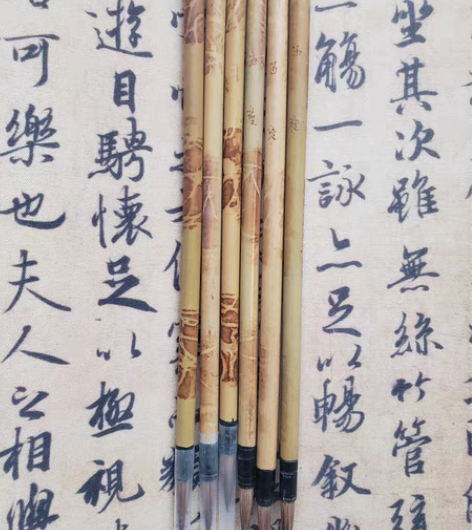 坐其次雖無絲竹管弦
一觴一詠亦足以暢叙
遊目騁懷足以極視
可樂也夫人之相與